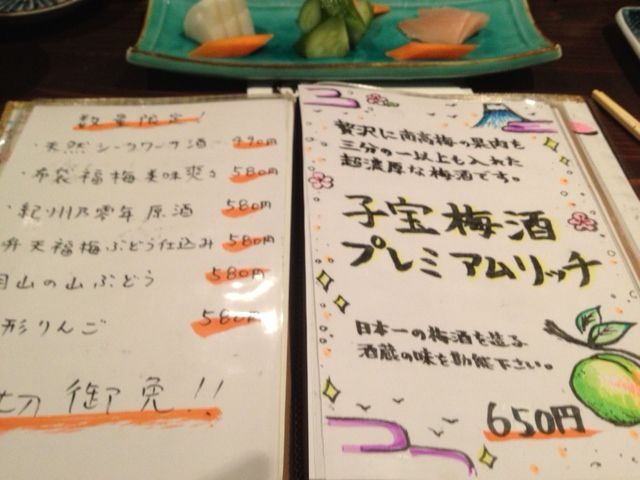 数量限定!
・天然シークワーサ酒 490円
・布袋福梅美味爽々 580円
・紀州乃零年原酒 580円
弁天福梅ぶどう仕込み 580円
月山の山ぶどう 580円
形りんご 580円
切御免!!
贅沢に南高梅の果肉を
三分の一以上も入れた
超濃厚な梅酒です。
子宝梅酒
プレミアムリッチ
日本一の梅酒を造る
酒蔵の味を勘能下さい。
650円